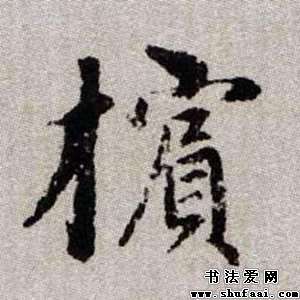 檳
书法爱网
www.shufaai.com